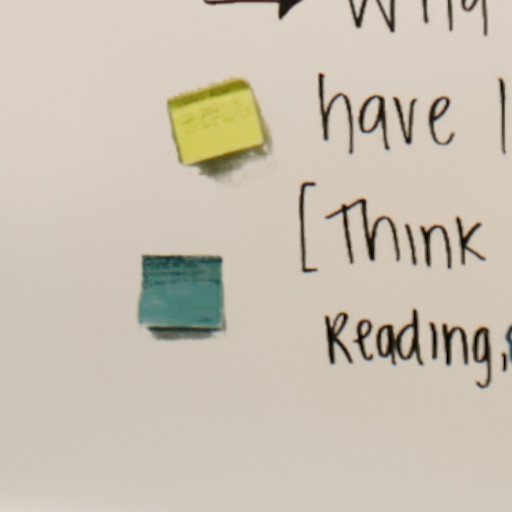 have
[Think
Reading,